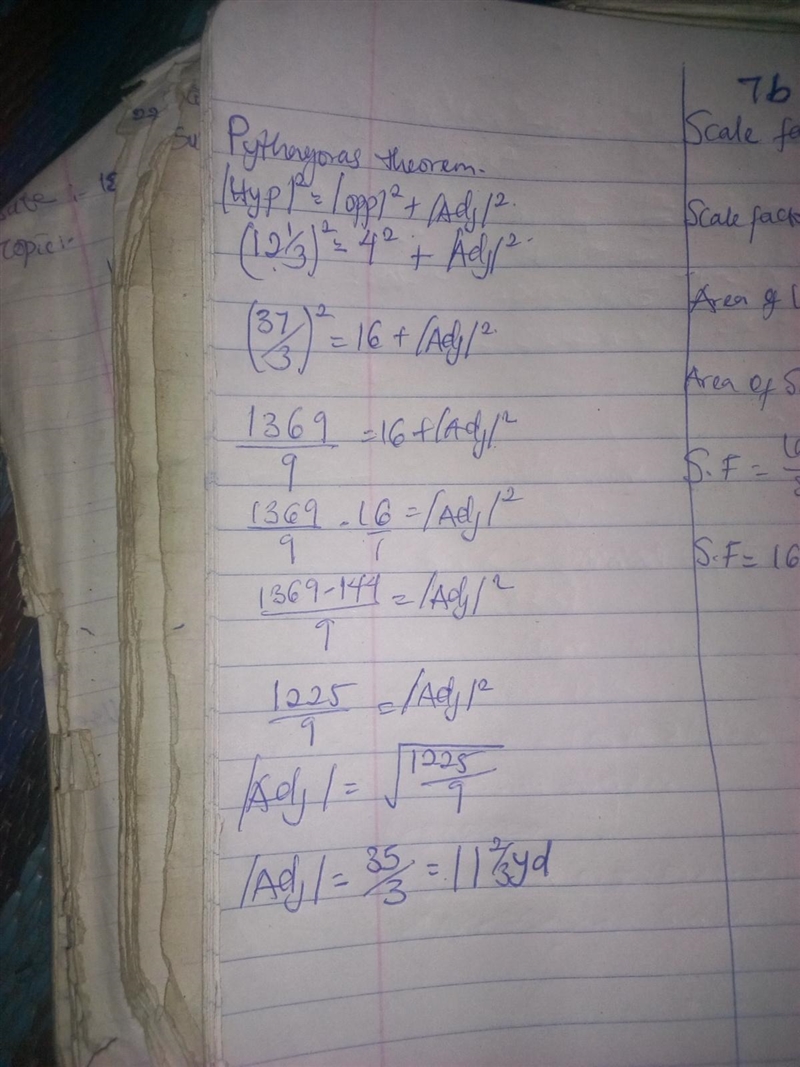 Pythagoras theorem.
|Hyp|² = |opp|² + |Adj|²
(12 1/3)² = 4² + |Adj|²
(37/3)² = 16 + |Adj|²
1369/9 = 16 + |Adj|²
1369/9 - 16/1 = |Adj|²
1369-144/9 = |Adj|²
1225/9 = |Adj|²
|Adj| = √1225/9
|Adj| = 35/3 = 11 2/3 yd
7b
Scale fa
Scale fact
Area of
Area of S
S.F =
S.F = 16
22
Topic:-